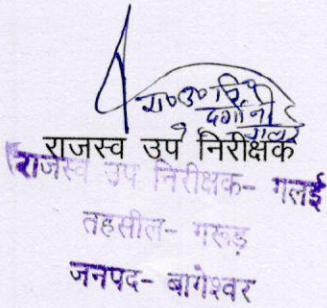 रा०उ०नि०
राजस्व उप निरीक्षक
राजस्व उप निरीक्षक- गलई
तहसील- गरूड़
जनपद- बागेश्वर